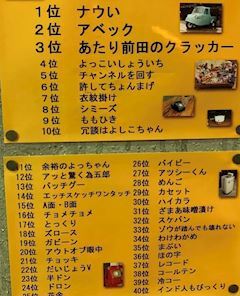 1位 ナウい
2位 アベック
3位 あたり前田のクラッカー
4位 よっこいしょういち
5位 チャンネルを回す
6位 許してちょんまげ
7位 衣紋掛け
8位 シミーズ
9位 ももひき
10位 冗談はよしこちゃん
11位 余裕のよっちゃん
12位 アッと驚く為五郎
13位 バッチグー
14位 エッチスケッチワンタッチ
15位 A面・B面
16位 チョメチョメ
17位 とっくり
18位 ズロース
19位 ガビーン
20位 アウトオブ眼中
21位 チョッキ
22位 だいじょうV
23位 半ドン
24位 ドロン
25位 花金
26位 バイビー
27位 アツシーくん
28位 めんご
29位 カセット
30位 ハイカラ
31位 ざまあ味噌漬け
32位 スケバン
33位 ゾウが踏んでも壊れない
34位 わけわかめ
35位 まぶい
36位 ほの字
37位 レコード
38位 コールテン
39位 冷コー
40位 インド人もびっくり